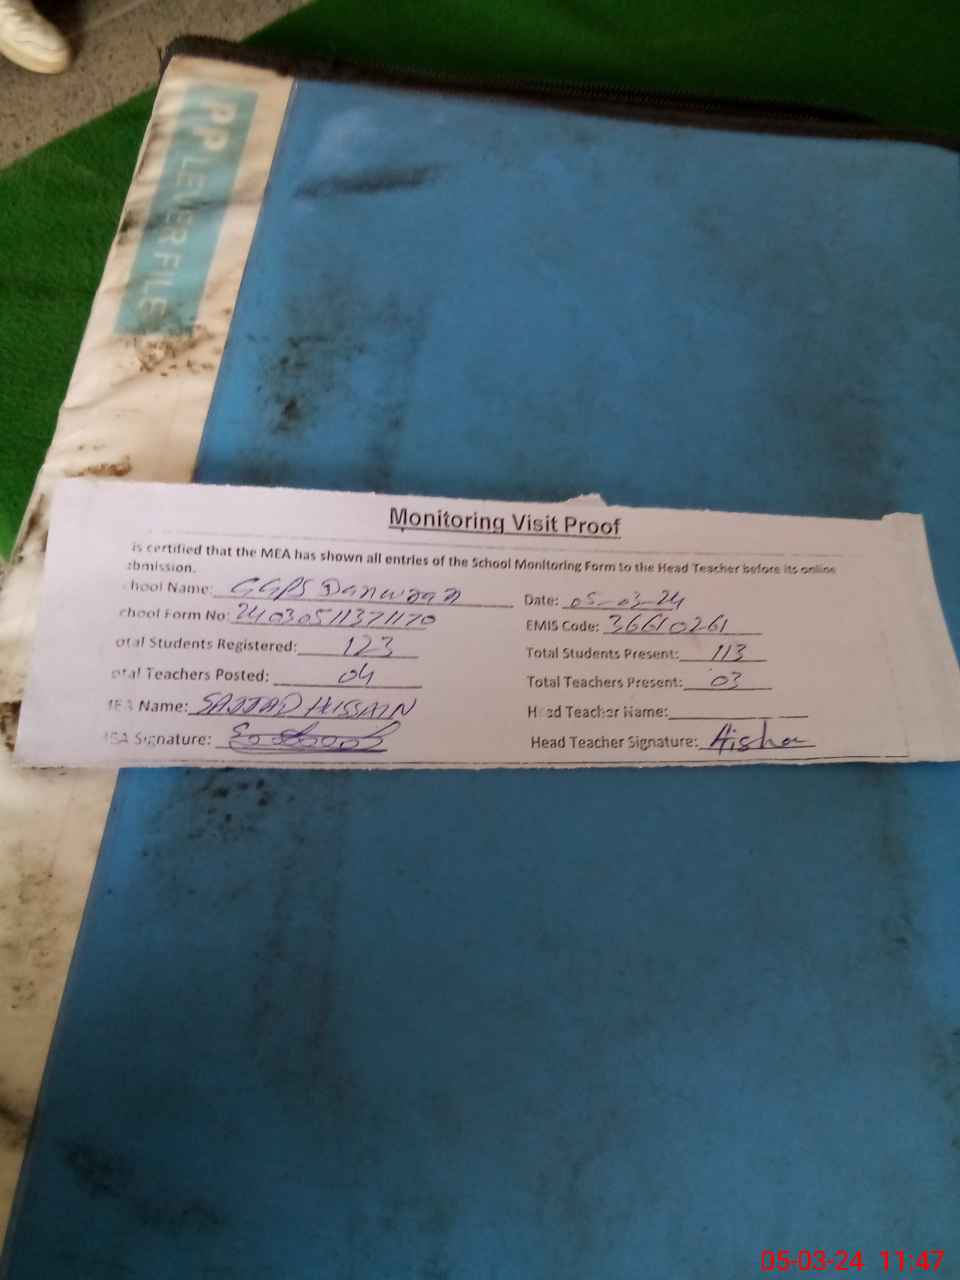 PP LEVER FILE
Monitoring Visit Proof
is certified that the MEA has shown all entries of the School Monitoring Form to the Head Teacher before its online
bmission.
hool Name: GGPS Danwran Date: 05-03-24
chool Form No: 2403051137 1170 EMIS Code: 36610261
otal Students Registered: 123 Total Students Present: 113
otal Teachers Posted: 04 Total Teachers Present: 03
MEA Name: SAJJAD HUSSAIN Head Teacher Name:
MEA Signature: Head Teacher Signature: Aisha
05-03-24 11:47